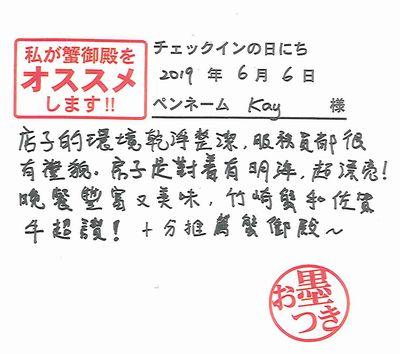 私が蟹御殿を
オススメ
します!!
チェックインの日にち
2019 年 6 月 6 日
ペンネーム Kay 様
店子的環境乾淨整潔,服務員都很
有禮貌。房子是對着有明海,超漂亮!
晚餐豐富又美味,竹崎蟹和佐賀
牛超讚! 十分推薦蟹御殿~
お墨
つき